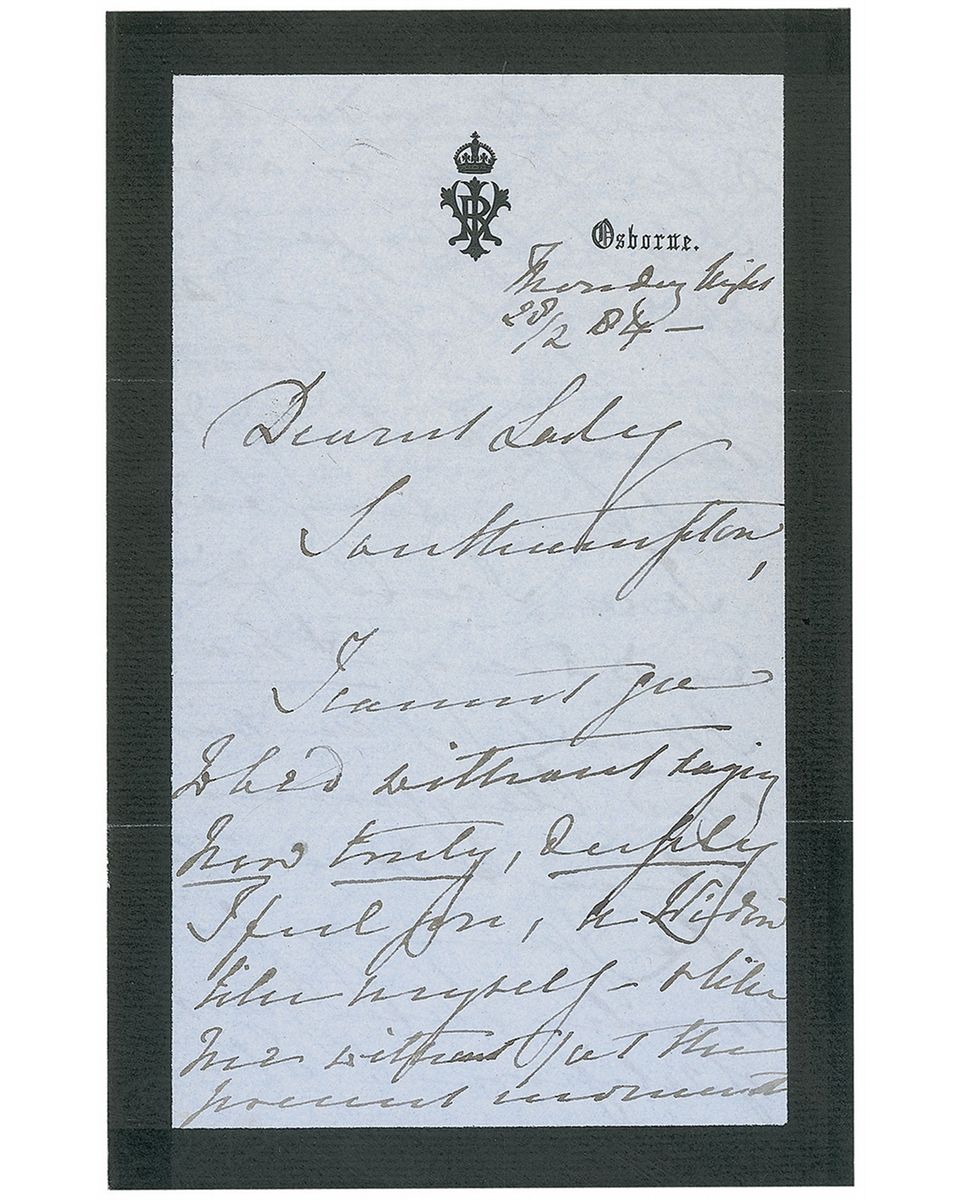 VRI
Osborne.
Thursday Night
28/2 84 –
Dearest Lady
Southampton,
I cannot go
to bed without saying
how truly, deeply
I feel for, a Widow
like myself – & like
me without (at the
present moment